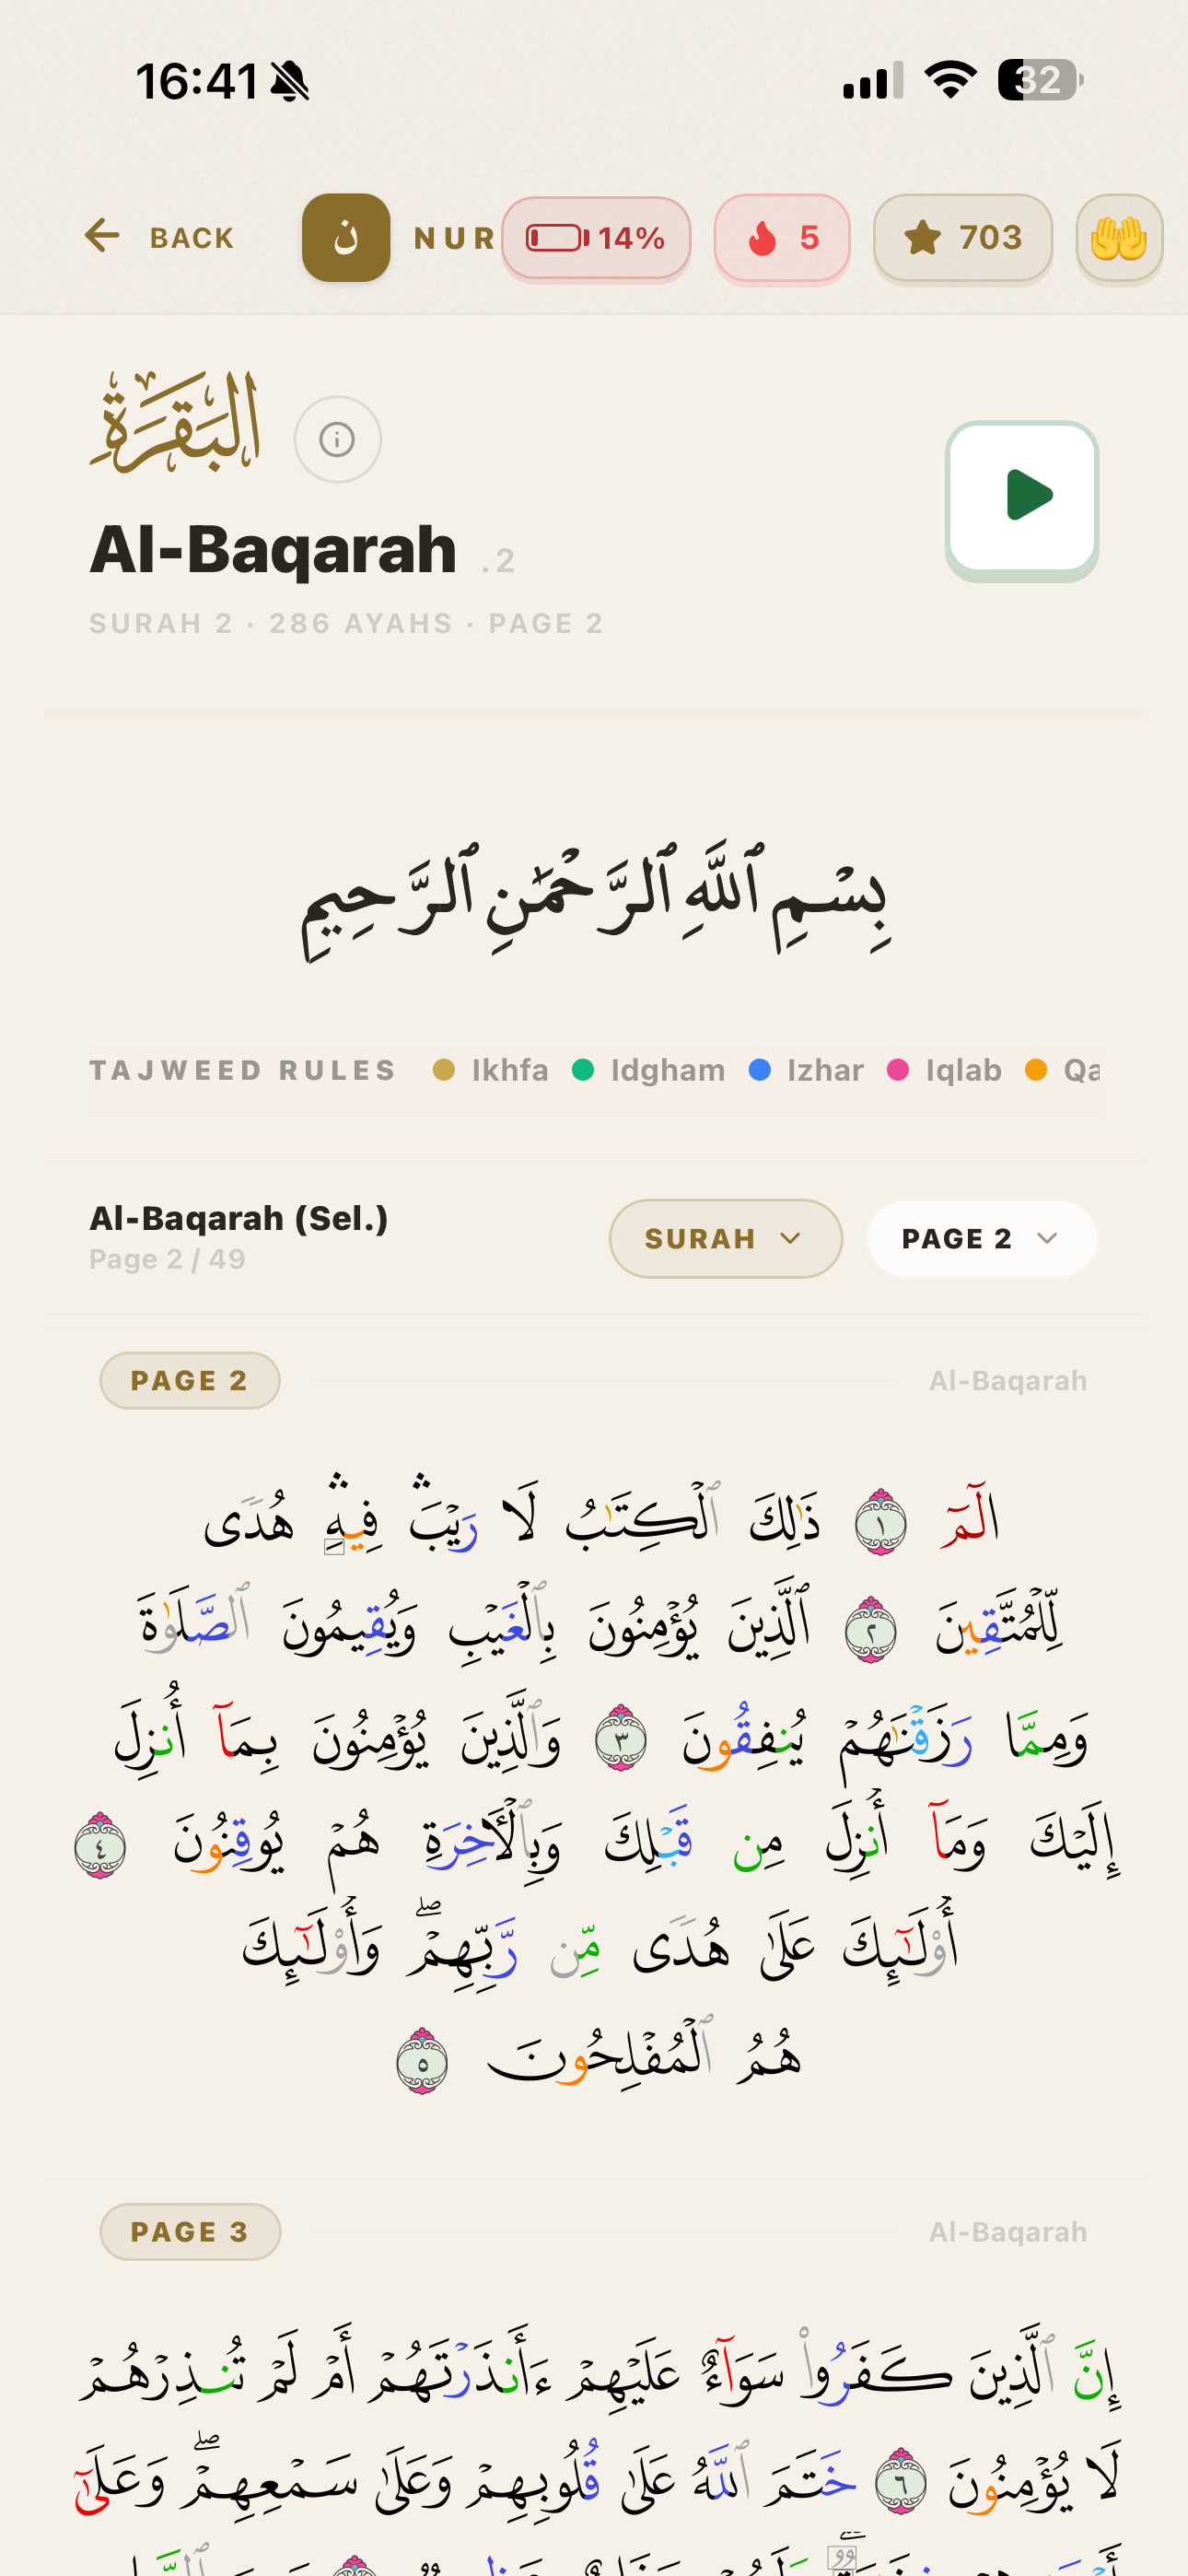 16:41 32
BACK ن NUR 14% 5 703
البَقَرَةِ
Al-Baqarah .2
SURAH 2 · 286 AYAHS · PAGE 2
بِسْمِ ٱللَّهِ ٱلرَّحْمَٰنِ ٱلرَّحِيمِ
TAJWEED RULES Ikhfa Idgham Izhar Iqlab Qa
Al-Baqarah (Sel.) SURAH PAGE 2
Page 2 / 49
PAGE 2 Al-Baqarah
الٓمٓ ١ ذَٰلِكَ ٱلْكِتَٰبُ لَا رَيْبَۛ فِيهِۛ هُدًى
لِّلْمُتَّقِينَ ٢ ٱلَّذِينَ يُؤْمِنُونَ بِٱلْغَيْبِ وَيُقِيمُونَ ٱلصَّلَوٰةَ
وَمِمَّا رَزَقْنَٰهُمْ يُنفِقُونَ ٣ وَٱلَّذِينَ يُؤْمِنُونَ بِمَآ أُنزِلَ
إِلَيْكَ وَمَآ أُنزِلَ مِن قَبْلِكَ وَبِٱلْأَخِرَةِ هُمْ يُوقِنُونَ ٤
أُوْلَٰٓئِكَ عَلَىٰ هُدًى مِّن رَّبِّهِمْۖ وَأُوْلَٰٓئِكَ
هُمُ ٱلْمُفْلِحُونَ ٥
PAGE 3 Al-Baqarah
إِنَّ ٱلَّذِينَ كَفَرُوا۟ سَوَآءٌ عَلَيْهِمْ ءَأَنذَرْتَهُمْ أَمْ لَمْ تُنذِرْهُمْ
لَا يُؤْمِنُونَ ٦ خَتَمَ ٱللَّهُ عَلَىٰ قُلُوبِهِمْ وَعَلَىٰ سَمْعِهِمْۖ وَعَلَىٰٓ